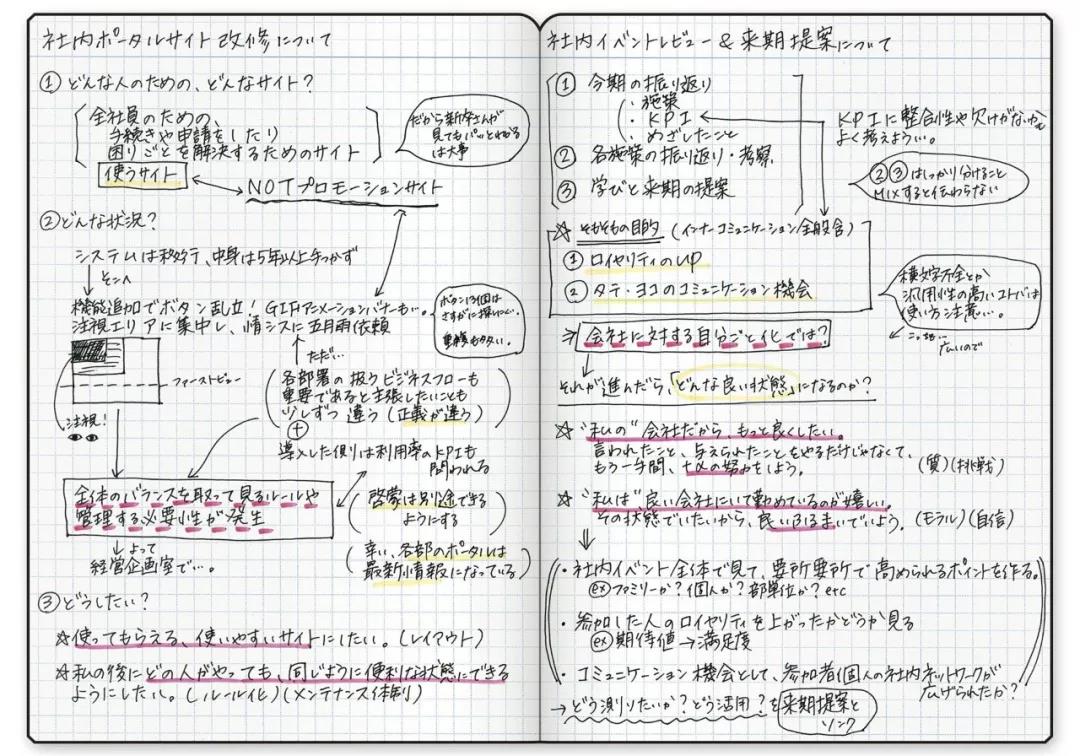 社内ポータルサイト改修について
① どんな人のための、どんなサイト?
全社員のための、
手続きや申請をしたり
困りごとを解決するためのサイト
だから新卒さんが
見てもパッとわかる
は大事
使うサイト
NOTプロモーションサイト
② どんな状況?
システムは移行、中身は5年以上手つかず
そこへ
機能追加でボタン乱立! GIFアニメーションバナーも…。
注視エリアに集中し、情シスに五月雨依頼
ボタン13個は
さすがに探しにくい。
重複も多い。
ファーストビュー
注視!
ただ…
各部署の扱うビジネスフローも
重要であると主張したいことも
少しずつ違う(正義が違う)
+
導入した側は利用率のKPIも
問われる
全体のバランスを取って見るルールや
管理する必要性が発生
よって
経営企画室で…。
啓蒙は別途できる
ようにする
幸い、各部のポータルは
最新情報になっている
③ どうしたい?
☆使ってもらえる、使いやすいサイトにしたい。(レイアウト)
☆私の後にどの人がやっても、同じように便利な状態にできる
ようにしたい。(ルール化)(メンテナンス体制)
社内イベントレビュー & 来期提案について
① 今期の振り返り
・施策
・KPI
・めざしたこと
② 各施策の振り返り・考察
③ 学びと来期の提案
KPIに整合性や欠けがないか
よく考えよう…。
②③はしっかり分けること
MIXすると伝わらない
☆ そもそもの目的 (インナーコミュニケーション全般含)
① ロイヤリティのup
② タテ・ヨコのコミュニケーション機会
横文字不全とか
汎用性の高いコトバは
使い方注意…。
広いので
⇒ 会社に対する自分ごと化では?
それが進んだら、「どんな良い状態」になるのか?
☆ "私の"会社だから、もっと良くしたい。
言われたこと、与えられたことをやるだけじゃなくて、
もう一手間、+αの努力をしよう。 (質)(挑戦)
☆ "私は"良い会社にいて勤めているのが嬉しい。
その状態でいたいから、良いふるまいでいよう。(モラル)(自信)
・社内イベント全体で見て、要所要所で高められるポイントを作る。
ex ファミリーか?個人か?部単位か?etc
・参加した人のロイヤリティを上がったかどうか見る
ex 期待値→満足度
・コミュニケーション機会として、参加者個人の社内ネットワークが
広げられたか?
→どう測りたいか?どう活用?を来期提案と
リンク